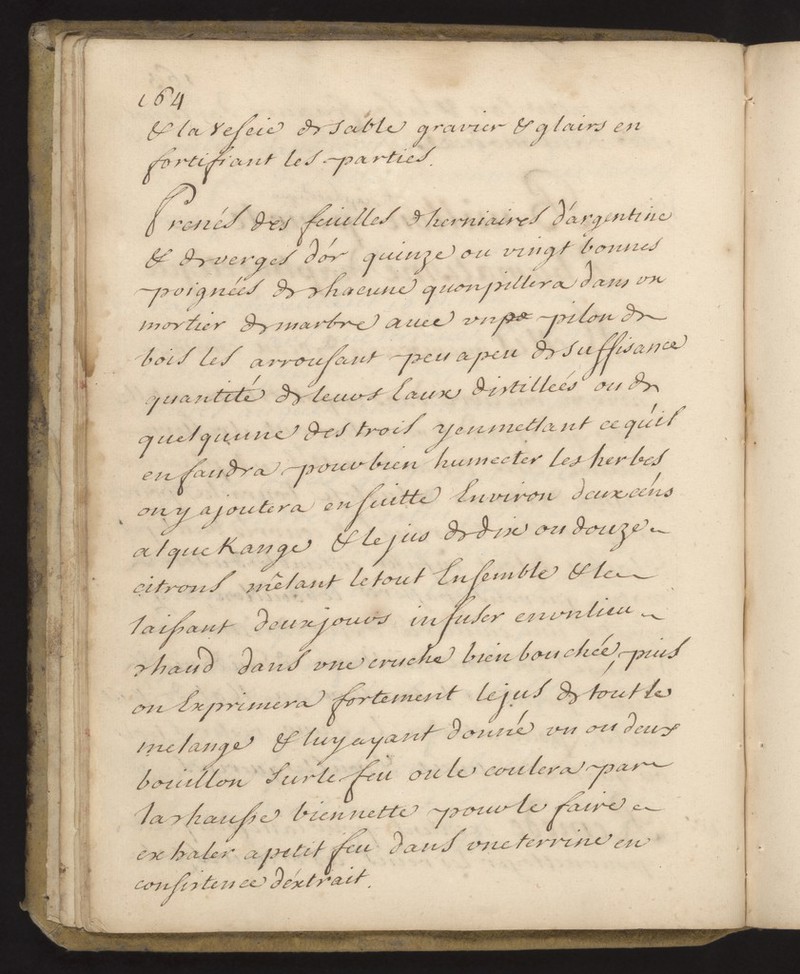 164
& la vescie de sable gravier & glairs en
fortifiant les parties.
Prenés des feuilles d herniaires d'argentine
& de verges d'or quinze ou vingt bonnes
poignées de chacune quon pillera dans vn
mortier de marbre avec vn pilon de
bois les arrousant peu a peu de suffisance
quantité de leurs Eaux distillées ou de
quelquune des trois y en mettant ce qu'il
en faudra pour bien humecter les herbes
on y ajoutera en suitte Environ deux céns
alqueKange & le jus de dix ou douze
citrons mêlant le tout Ensemble & le
laissant deux jours infuser en vn lieu
chaud dans vne cruche bien bouchée, puis
on Exprimera fortement le jus de tout le
melange & luy ayant donné vn ou deux
bouillon sur le feu on le coulera par
la chausse bien nette pour le faire
exhaler a petit feu dans vne terrine en
consistence d'éxtrait.